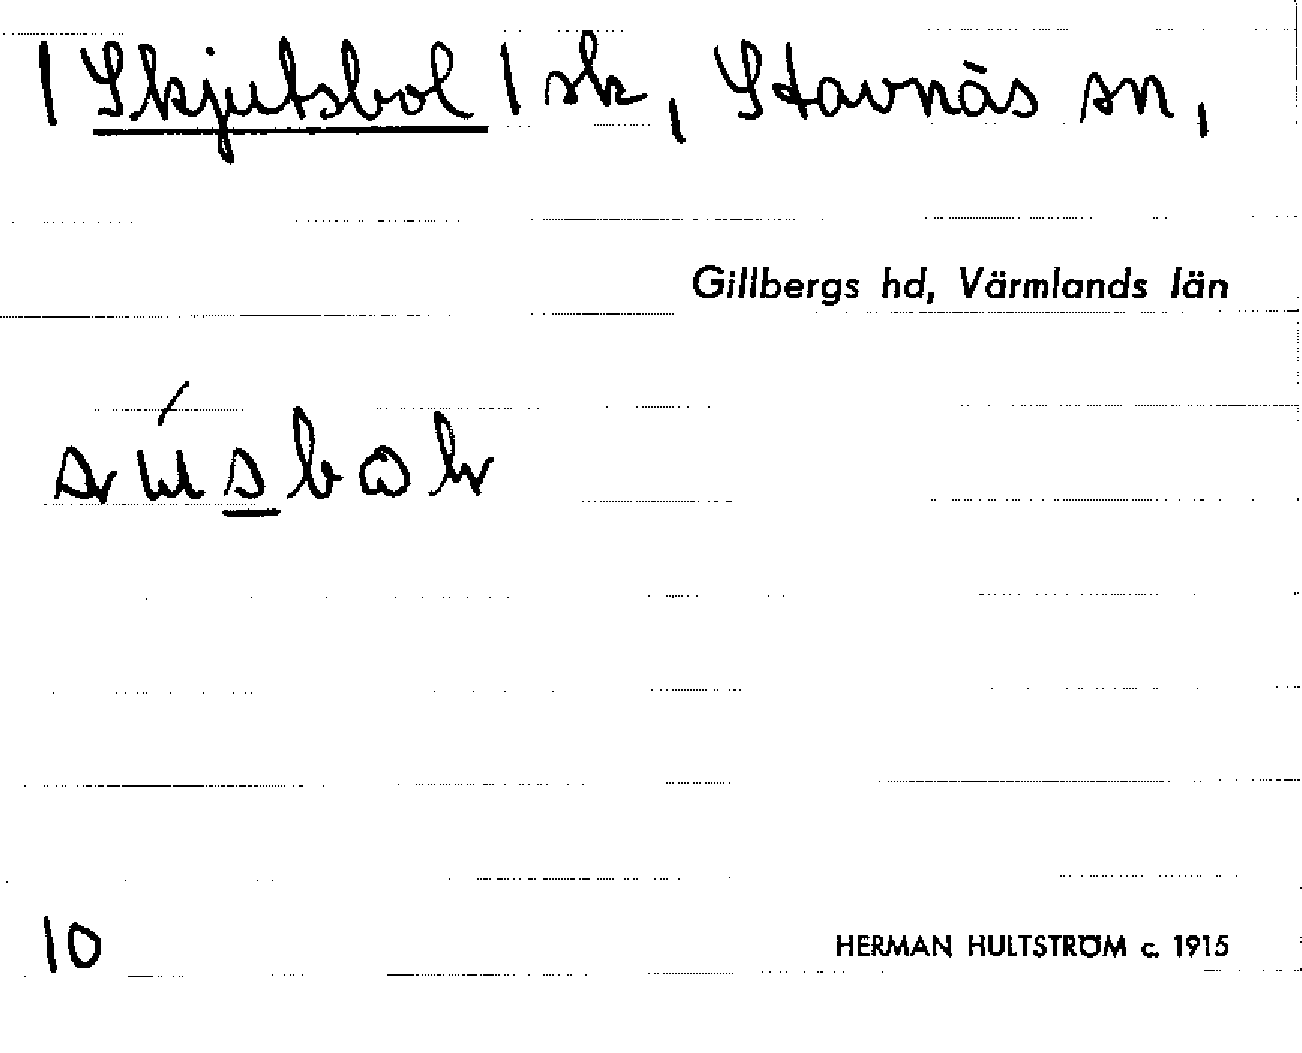 | Skjutsbol | sk, Stavnäs sn,
Gillbergs hd, Värmlands län
10
HERMAN HULTSTRÖM c. 1915